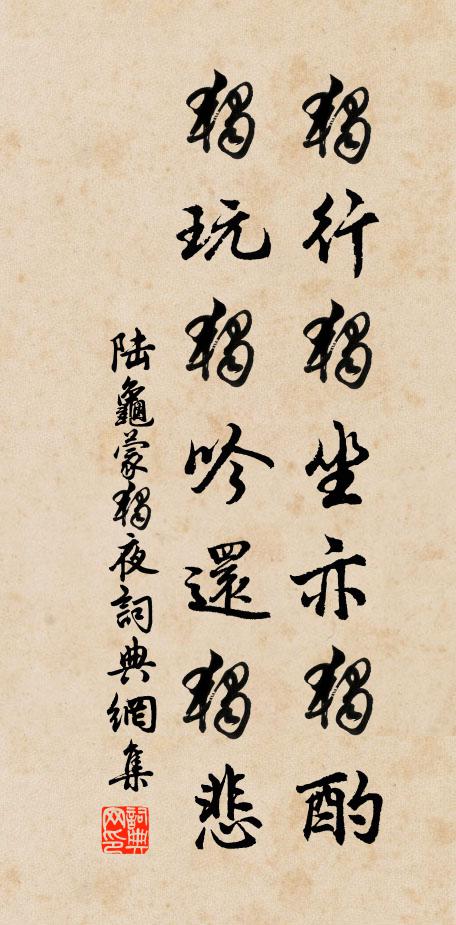 獨行獨坐亦獨酌
獨玩獨吟還獨悲
陸龜蒙獨夜詞典網集
詞典網印